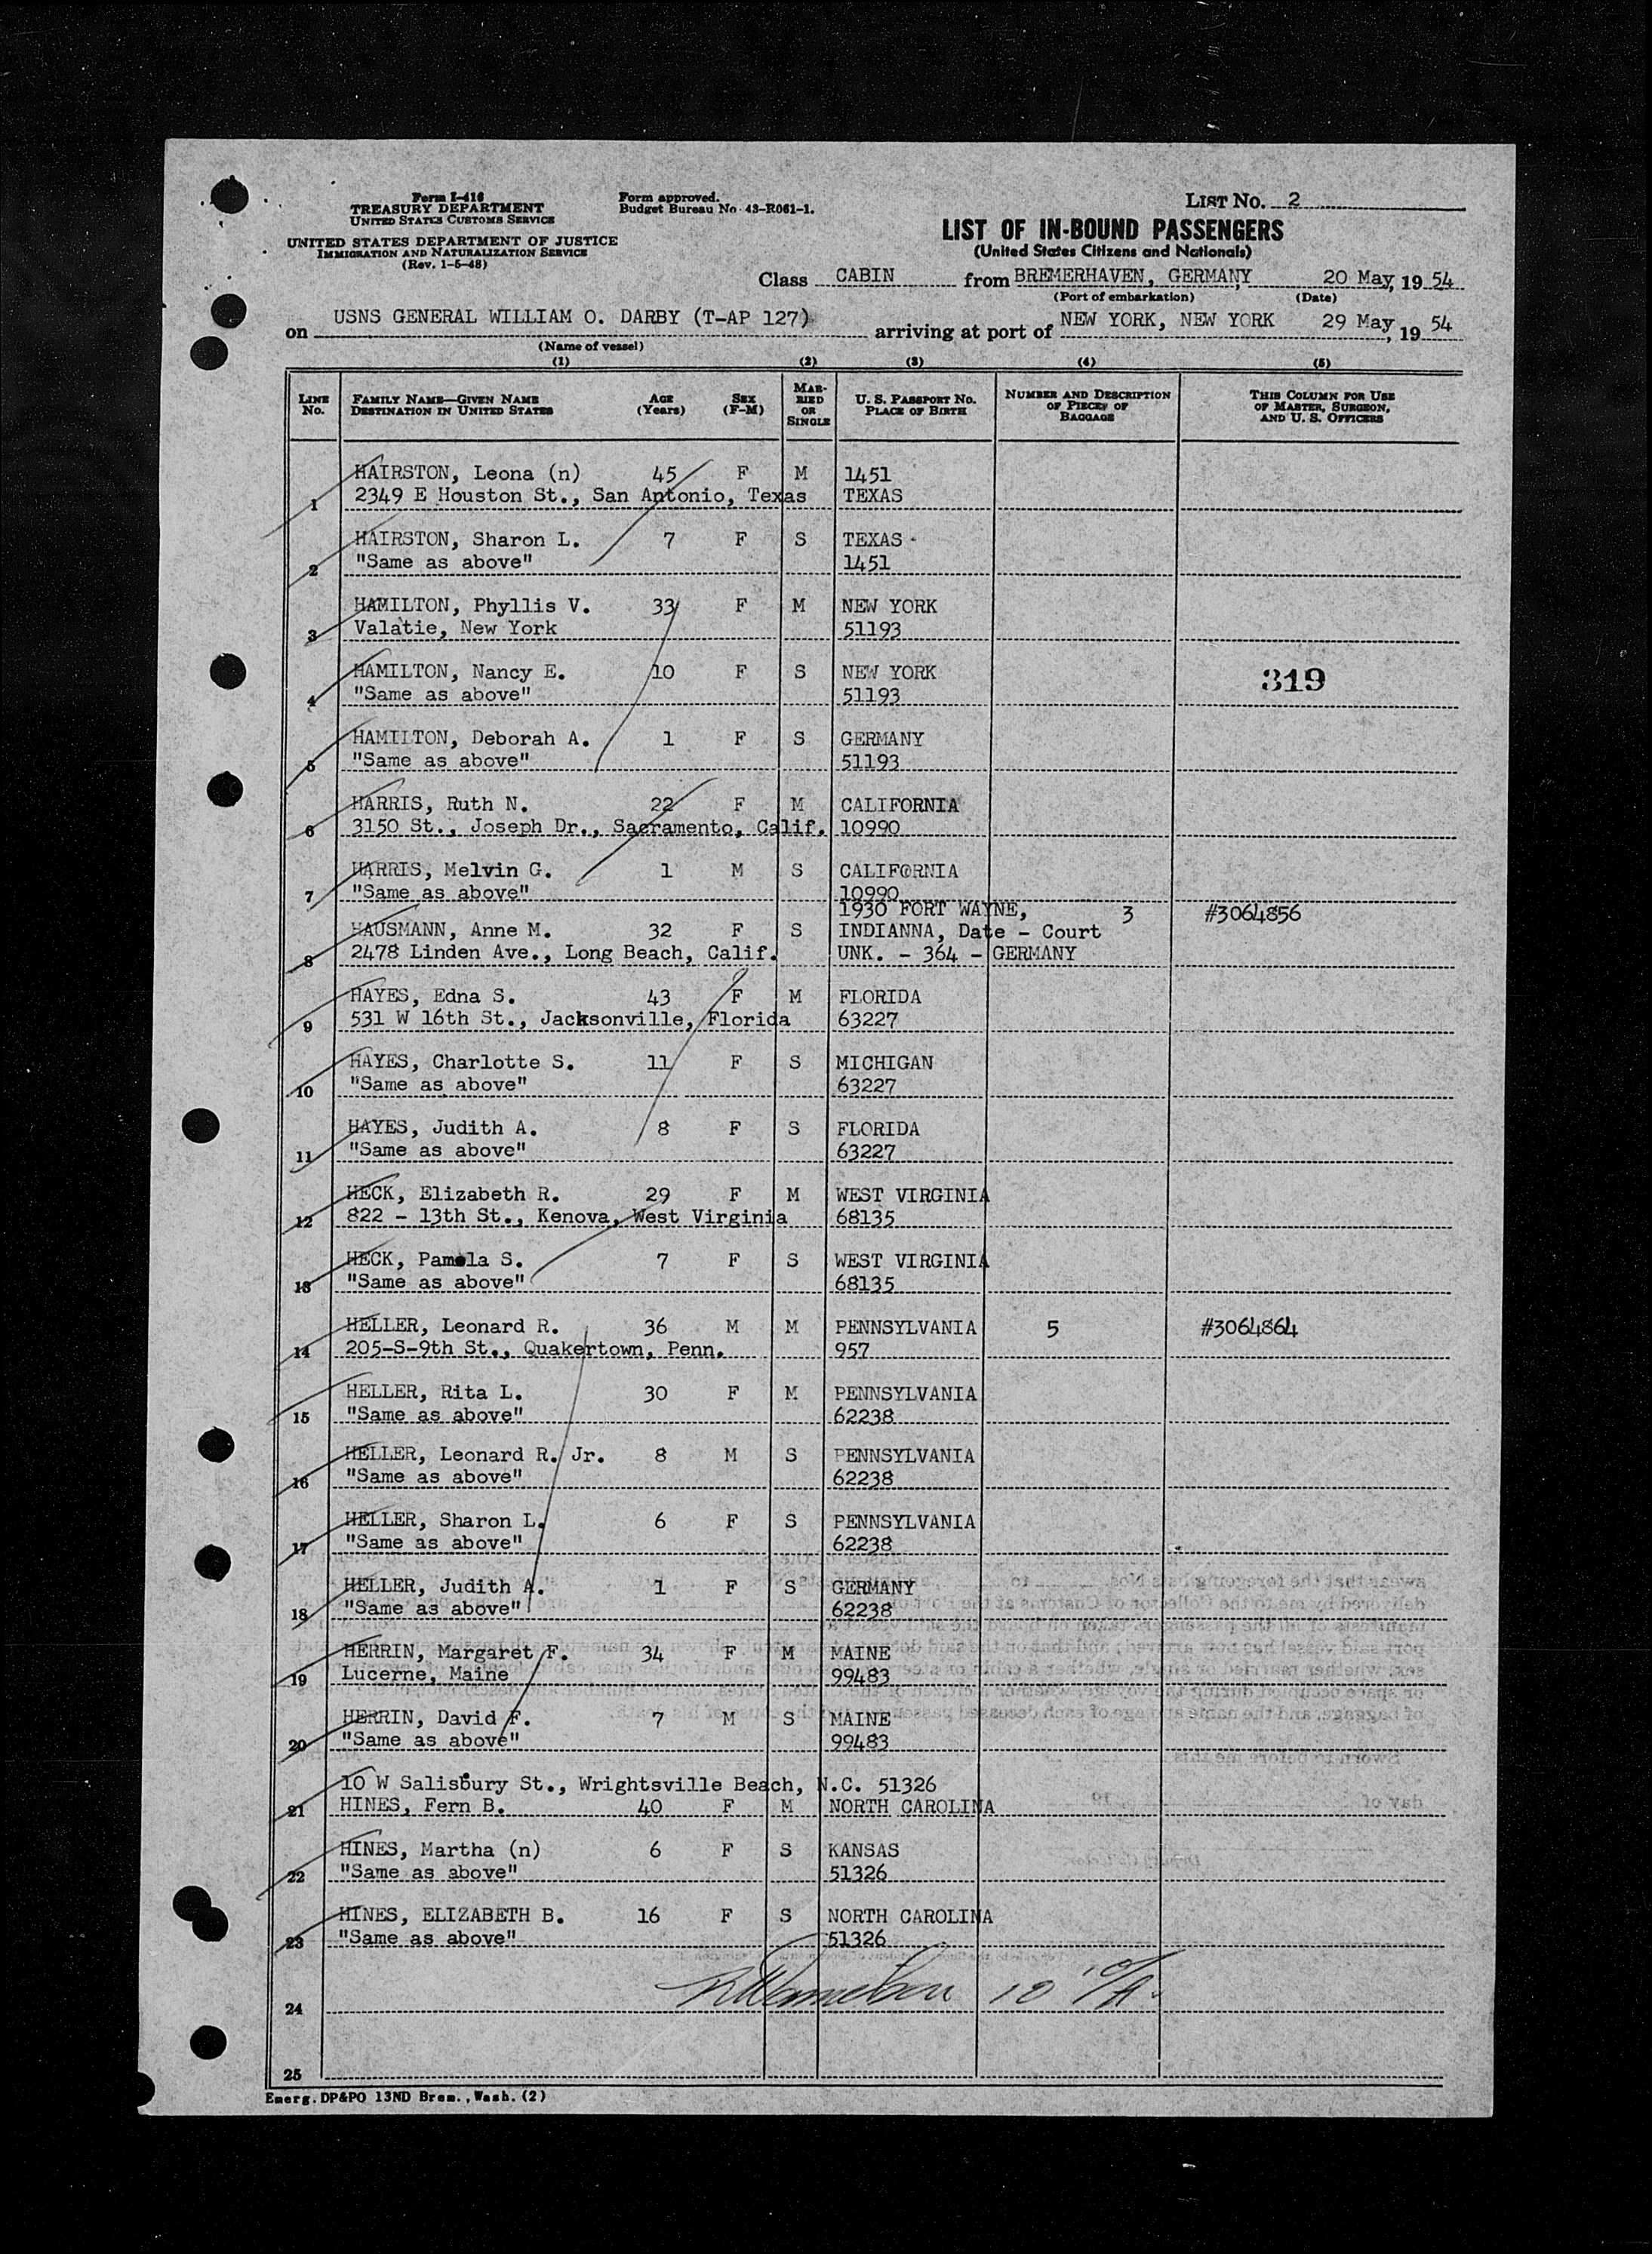 Form I-416
TREASURY DEPARTMENT
UNITED STATES CUSTOMS SERVICE
UNITED STATES DEPARTMENT OF JUSTICE
IMMIGRATION AND NATURALIZATION SERVICE
(Rev. 1-5-48)
Form approved.
Budget Bureau No. 43-R061-1.
LIST NO. 2
LIST OF IN-BOUND PASSENGERS
(United States Citizens and Nationals)
Class CABIN from BREMERHAVEN, GERMANY, 20 May, 19 54
(Port of embarkation) (Date)
on USNS GENERAL WILLIAM O. DARBY (T-AP 127) arriving at port of NEW YORK, NEW YORK 29 May, 19 54
(Name of vessel)
(1) (2) (3) (4) (5)
LINE NO. FAMILY NAME—GIVEN NAME DESTINATION IN UNITED STATES AGE (YEARS) SEX (F-M) MARRIED OR SINGLE U. S. PASSPORT NO. PLACE OF BIRTH NUMBER AND DESCRIPTION OF PIECES OF BAGGAGE THIS COLUMN FOR USE OF MASTER, SURGEON, AND U. S. OFFICERS
HAIRSTON, Leona (n) 45 F M 1451
1 2349 E Houston St., San Antonio, Texas TEXAS
HAIRSTON, Sharon L. 7 F S TEXAS
2 "Same as above" 1451
HAMILTON, Phyllis V. 33 F M NEW YORK
3 Valatie, New York 51193
HAMILTON, Nancy E. 10 F S NEW YORK 319
4 "Same as above" 51193
HAMIITON, Deborah A. 1 F S GERMANY
5 "Same as above" 51193
HARRIS, Ruth N. 22 F M CALIFORNIA
6 3150 St., Joseph Dr., Sacramento, Calif. 10990
HARRIS, Melvin G. 1 M S CALIFORNIA
7 "Same as above" 10990
1930 FORT WAYNE, 3 #3064856
HAUSMANN, Anne M. 32 F S INDIANNA, Date - Court
8 2478 Linden Ave., Long Beach, Calif. UNK. - 364 - GERMANY
HAYES, Edna S. 43 F M FLORIDA
9 531 W 16th St., Jacksonville, Florida 63227
HAYES, Charlotte S. 11 F S MICHIGAN
10 "Same as above" 63227
HAYES, Judith A. 8 F S FLORIDA
11 "Same as above" 63227
HECK, Elizabeth R. 29 F M WEST VIRGINIA
12 822 - 13th St., Kenova, West Virginia 68135
HECK, Pamela S. 7 F S WEST VIRGINIA
13 "Same as above" 68135
HELLER, Leonard R. 36 M M PENNSYLVANIA 5 #3064864
14 205-S-9th St., Quakertown, Penn. 957
HELLER, Rita L. 30 F M PENNSYLVANIA
15 "Same as above" 62238
HELLER, Leonard R. Jr. 8 M S PENNSYLVANIA
16 "Same as above" 62238
HELLER, Sharon L. 6 F S PENNSYLVANIA
17 "Same as above" 62238
HELLER, Judith A. 1 F S GERMANY
18 "Same as above" 62238
HERRIN, Margaret F. 34 F M MAINE
19 Lucerne, Maine 99483
HERRIN, David F. 7 M S MAINE
20 "Same as above" 99483
10 W Salisbury St., Wrightsville Beach, N.C. 51326
21 HINES, Fern B. 40 F M NORTH CAROLINA
HINES, Martha (n) 6 F S KANSAS
22 "Same as above" 51326
HINES, ELIZABETH B. 16 F S NORTH CAROLINA
23 "Same as above" 51326
24
25
Emerg. DP&PO 13ND Brem., Wash. (2)